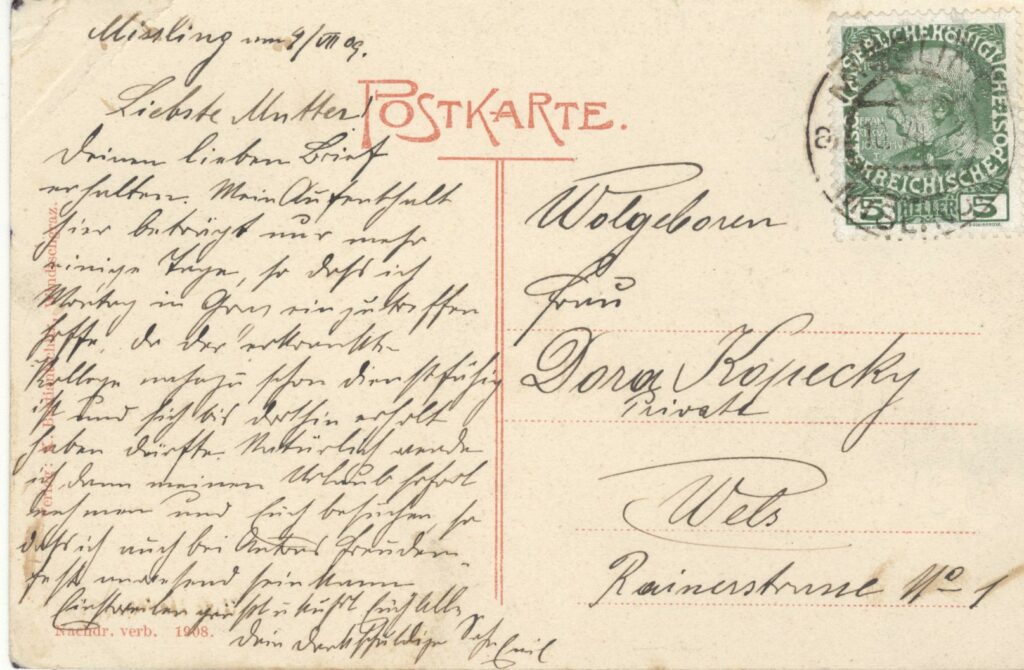 Missling am 9/VII 09.
POSTKARTE.
Liebste Mutter!
Deinen lieben Brief
erhalten. Mein Aufenthalt
hier beträgt nur mehr
einige Tage, so dass ich
Montag in Graz einzutreffen
hoffe, da der erkrankte
Kollege nahezu schon dienstfähig
ist und sich bis dorthin erholt
haben dürfte. Natürlich werde
ich dann meinen Urlaub sofort
nehmen und Euch besuchen, so
dass ich auch bei Freuden-
feste anwesend sein kann
Einstweilen grüsst u küsst Euch Alle
Dein dankschuldiger Sohn Emil
Nachdr. verb. 1908.
Wolgeboren
Frau
Dora Kopecky
Private
Wels
Rainerstrasse No 1
5 HELLER 5